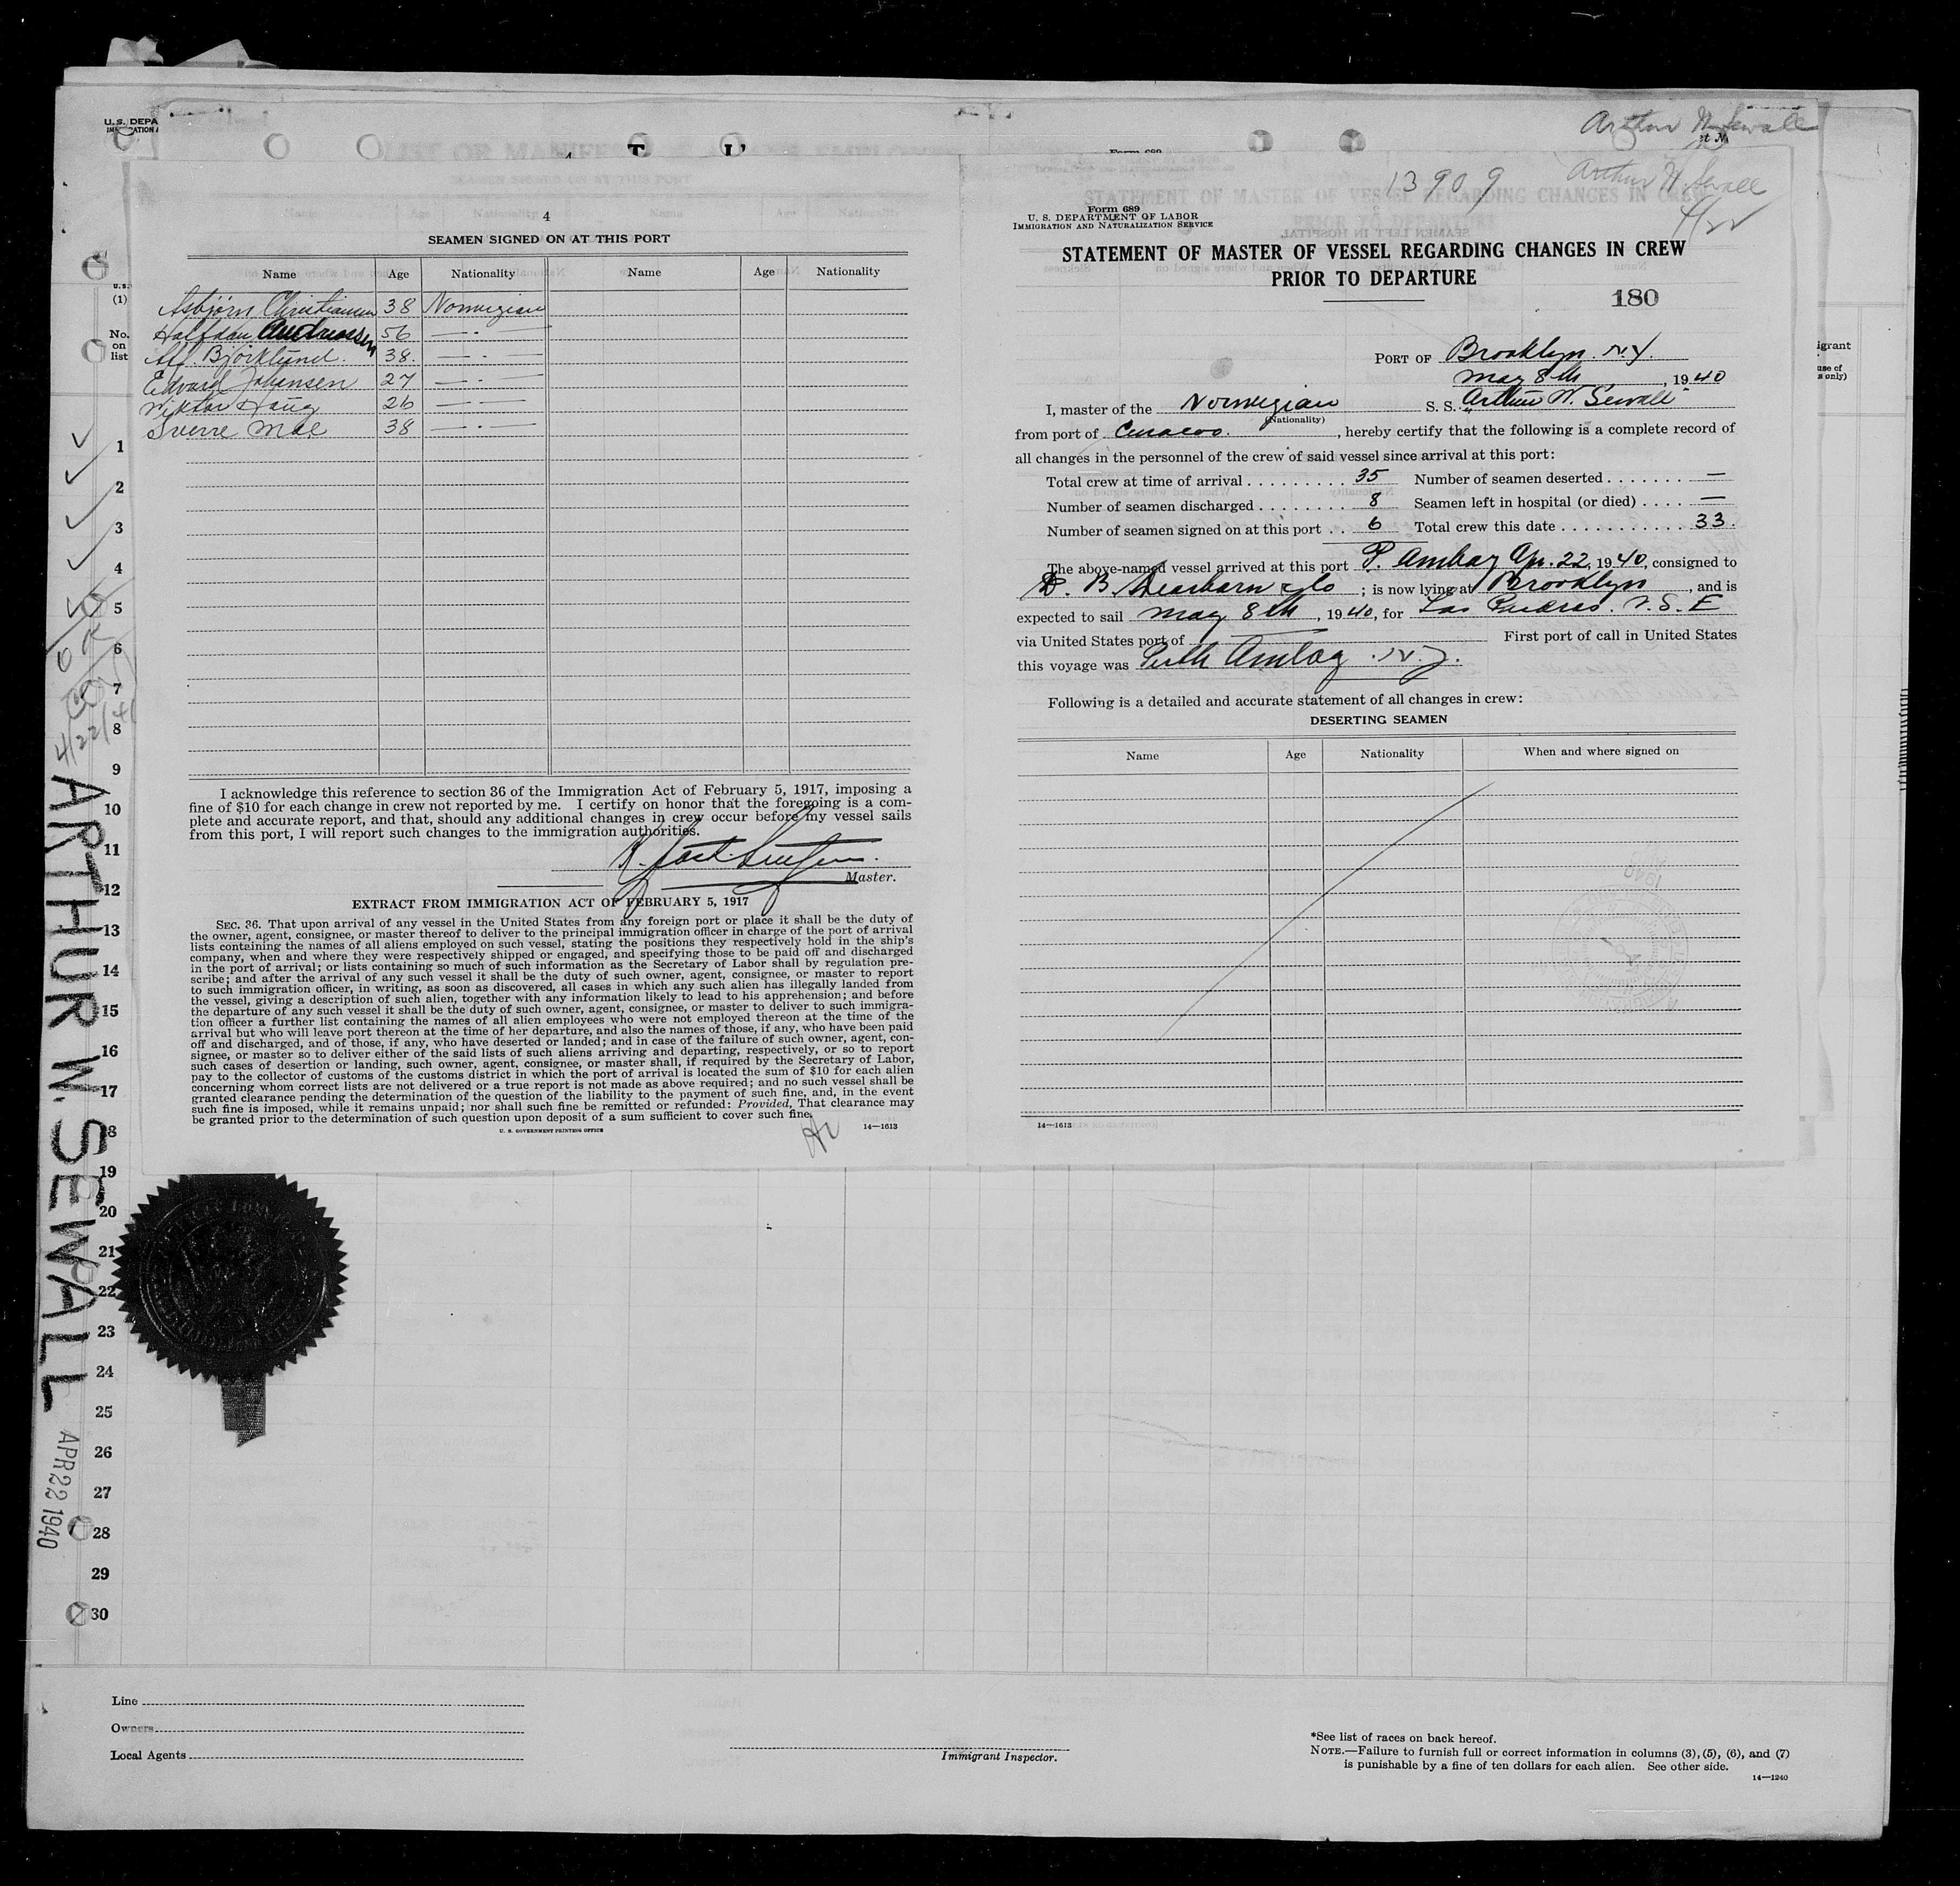 U.S. DEPA
4
SEAMEN SIGNED ON AT THIS PORT
Name Age Nationality Name Age Nationality
Asbjørn Christiansen 38 Norwegian
Halfdan Andreassen 56 — " —
Alf Bjørklund. 38. — " —
Edvard Johansen 27 — " —
Viktor Haug 26 — " —
Sverre Moe 38 — " —
I acknowledge this reference to section 36 of the Immigration Act of February 5, 1917, imposing a
fine of $10 for each change in crew not reported by me. I certify on honor that the foregoing is a com-
plete and accurate report, and that, should any additional changes in crew occur before my vessel sails
from this port, I will report such changes to the immigration authorities.
Master.
EXTRACT FROM IMMIGRATION ACT OF FEBRUARY 5, 1917
SEC. 36. That upon arrival of any vessel in the United States from any foreign port or place it shall be the duty of
the owner, agent, consignee, or master thereof to deliver to the principal immigration officer in charge of the port of arrival
lists containing the names of all aliens employed on such vessel, stating the positions they respectively hold in the ship's
company, when and where they were respectively shipped or engaged, and specifying those to be paid off and discharged
in the port of arrival; or lists containing so much of such information as the Secretary of Labor shall by regulation pre-
scribe; and after the arrival of any such vessel it shall be the duty of such owner, agent, consignee, or master to report
to such immigration officer, in writing, as soon as discovered, all cases in which any such alien has illegally landed from
the vessel, giving a description of such alien, together with any information likely to lead to his apprehension; and before
the departure of any such vessel it shall be the duty of such owner, agent, consignee, or master to deliver to such immigra-
tion officer a further list containing the names of all alien employees who were not employed thereon at the time of the
arrival but who will leave port thereon at the time of her departure, and also the names of those, if any, who have been paid
off and discharged, and of those, if any, who have deserted or landed; and in case of the failure of such owner, agent, con-
signee, or master so to deliver either of the said lists of such aliens arriving and departing, respectively, or so to report
such cases of desertion or landing, such owner, agent, consignee, or master shall, if required by the Secretary of Labor,
pay to the collector of customs of the customs district in which the port of arrival is located the sum of $10 for each alien
concerning whom correct lists are not delivered or a true report is not made as above required; and no such vessel shall be
granted clearance pending the determination of the question of the liability to the payment of such fine, and, in the event
such fine is imposed, while it remains unpaid; nor shall such fine be remitted or refunded: Provided, That clearance may
be granted prior to the determination of such question upon deposit of a sum sufficient to cover such fine.
U. S. GOVERNMENT PRINTING OFFICE 14—1613
Arthur W. Sewall
13909 Arthur W. Sewall
4/22
Form 689
U. S. DEPARTMENT OF LABOR
IMMIGRATION AND NATURALIZATION SERVICE
STATEMENT OF MASTER OF VESSEL REGARDING CHANGES IN CREW
PRIOR TO DEPARTURE
180
PORT OF Brooklyn. N.Y.
May 8th, 1940
I, master of the Norwegian S. S. "Arthur W. Sewall"
(Nationality)
from port of Curacao., hereby certify that the following is a complete record of
all changes in the personnel of the crew of said vessel since arrival at this port:
Total crew at time of arrival 35 Number of seamen deserted —
Number of seamen discharged 8 Seamen left in hospital (or died) —
Number of seamen signed on at this port 6 Total crew this date 33.
The above-named vessel arrived at this port P. Amboy Apr. 22, 1940, consigned to
D. B. Dearborn & Co; is now lying at Brooklyn, and is
expected to sail May 8th, 1940, for Las Piedras. V.S.E
via United States port of — First port of call in United States
this voyage was Perth Amboy. N.J.
Following is a detailed and accurate statement of all changes in crew:
DESERTING SEAMEN
Name Age Nationality When and where signed on
14—1613
(1)
No.
on
list
1
2
3
4
5
6
7
8
9
10
11
12
13
14
15
16
17
18
19
20
21
22
23
24
25
26
27
28
29
30
OK
4/22/40
ARTHUR W. SEWALL
APR 22 1940
Line
Owners
Local Agents
Immigrant Inspector.
*See list of races on back hereof.
NOTE.—Failure to furnish full or correct information in columns (3), (5), (6), and (7)
is punishable by a fine of ten dollars for each alien. See other side.
14—1240